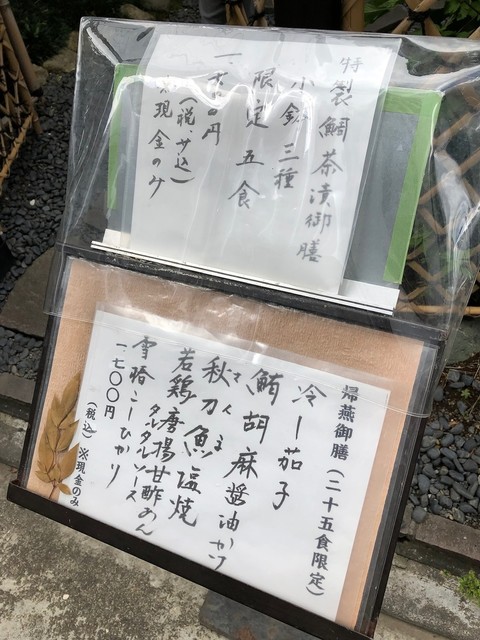 特製鯛茶漬御膳
小鉢三種
限定五食
(税、サ込)
※現金のみ
帰燕御膳(二十五食限定)
冷し茄子
鮪胡麻醤油かけ
さんま
秋刀魚塩焼
若鶏唐揚甘酢あん
タルタルソース
雪椿こしひかり
一七〇〇円
(税込)※現金のみ